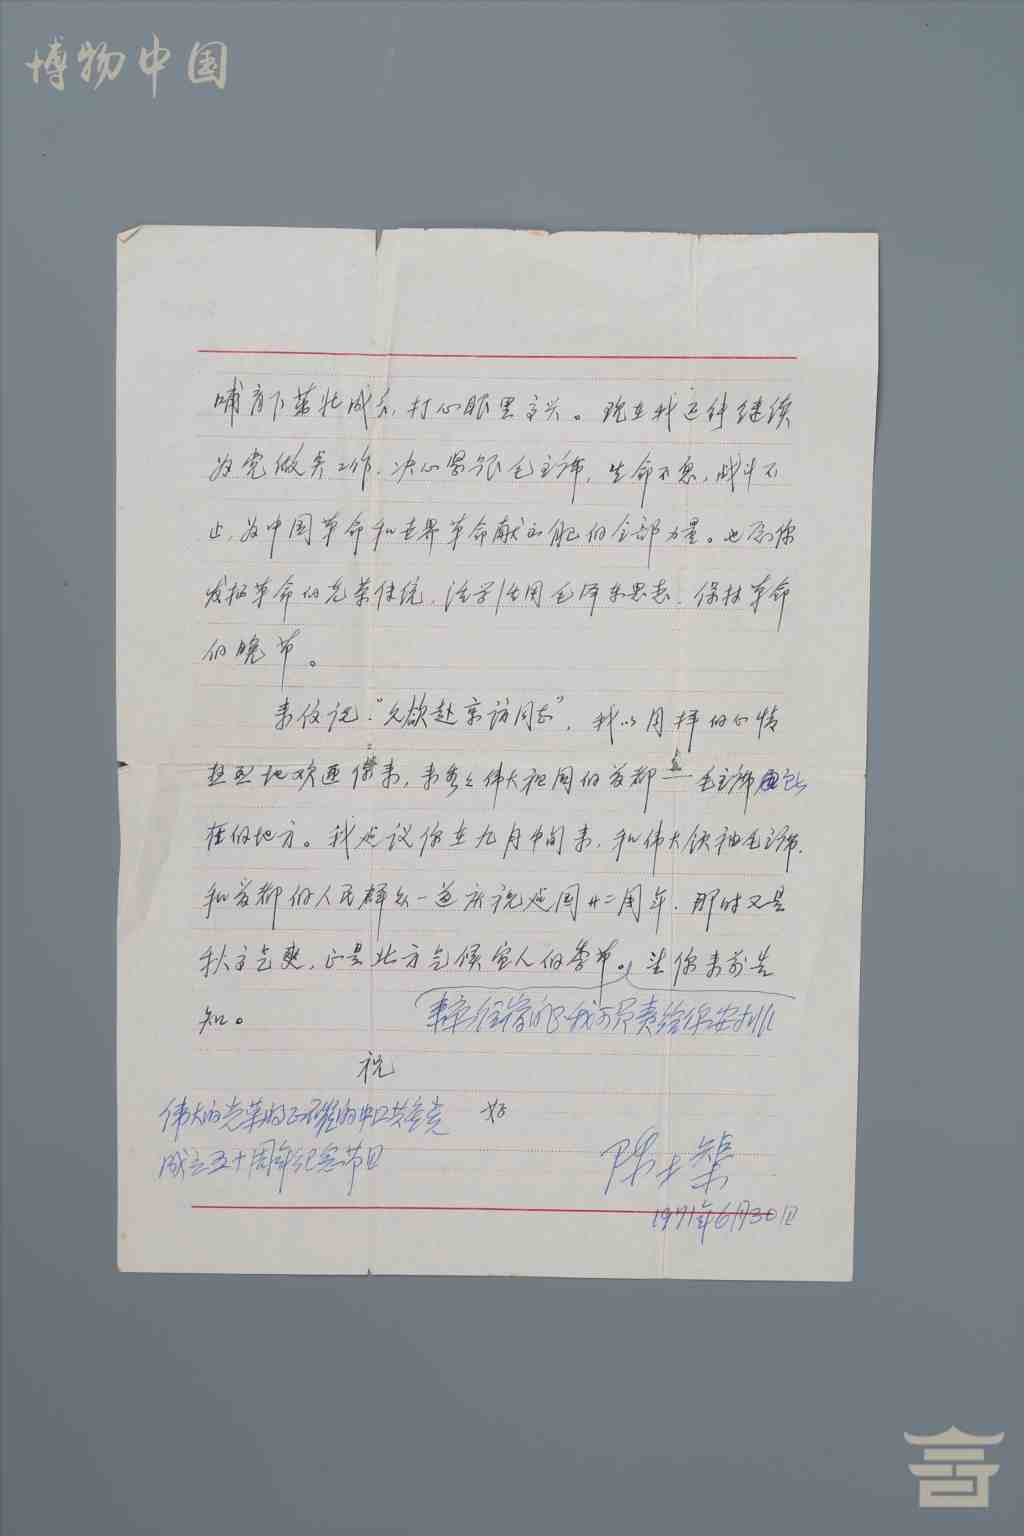 博物中国
哺育下茁壮成长，打心眼里高兴。现在我还能继续
为党做点工作，决心紧跟毛主席，生命不息，战斗不
止，为中国革命和世界革命献出自己的全部力量。也愿你
发扬革命的光荣传统，活学活用毛泽东思想，保持革命
的晚节。
来信说：“久欲赴京访同志”，我以同样的心情
热烈地欢迎你来，来看看伟大祖国的首都——毛主席居住
在的地方。我建议你在九月中间来，和伟大领袖毛主席，
和首都的人民群众一道庆祝建国廿二周年，那时又是
秋高气爽，正是北方气候宜人的季节。望你来前告
知。
来京住宿的我可负责给你安排
祝
好
伟大的光荣的正确的中国共产党
成立五十周年纪念节日
陈士榘
1971年6月30日